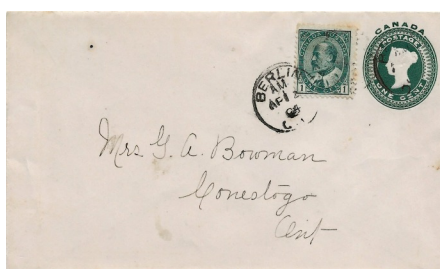 CANADA
POSTAGE
ONE CENT
BERLIN
AM
AP
Mrs. G. A. Bowman
Conestogo
Ont